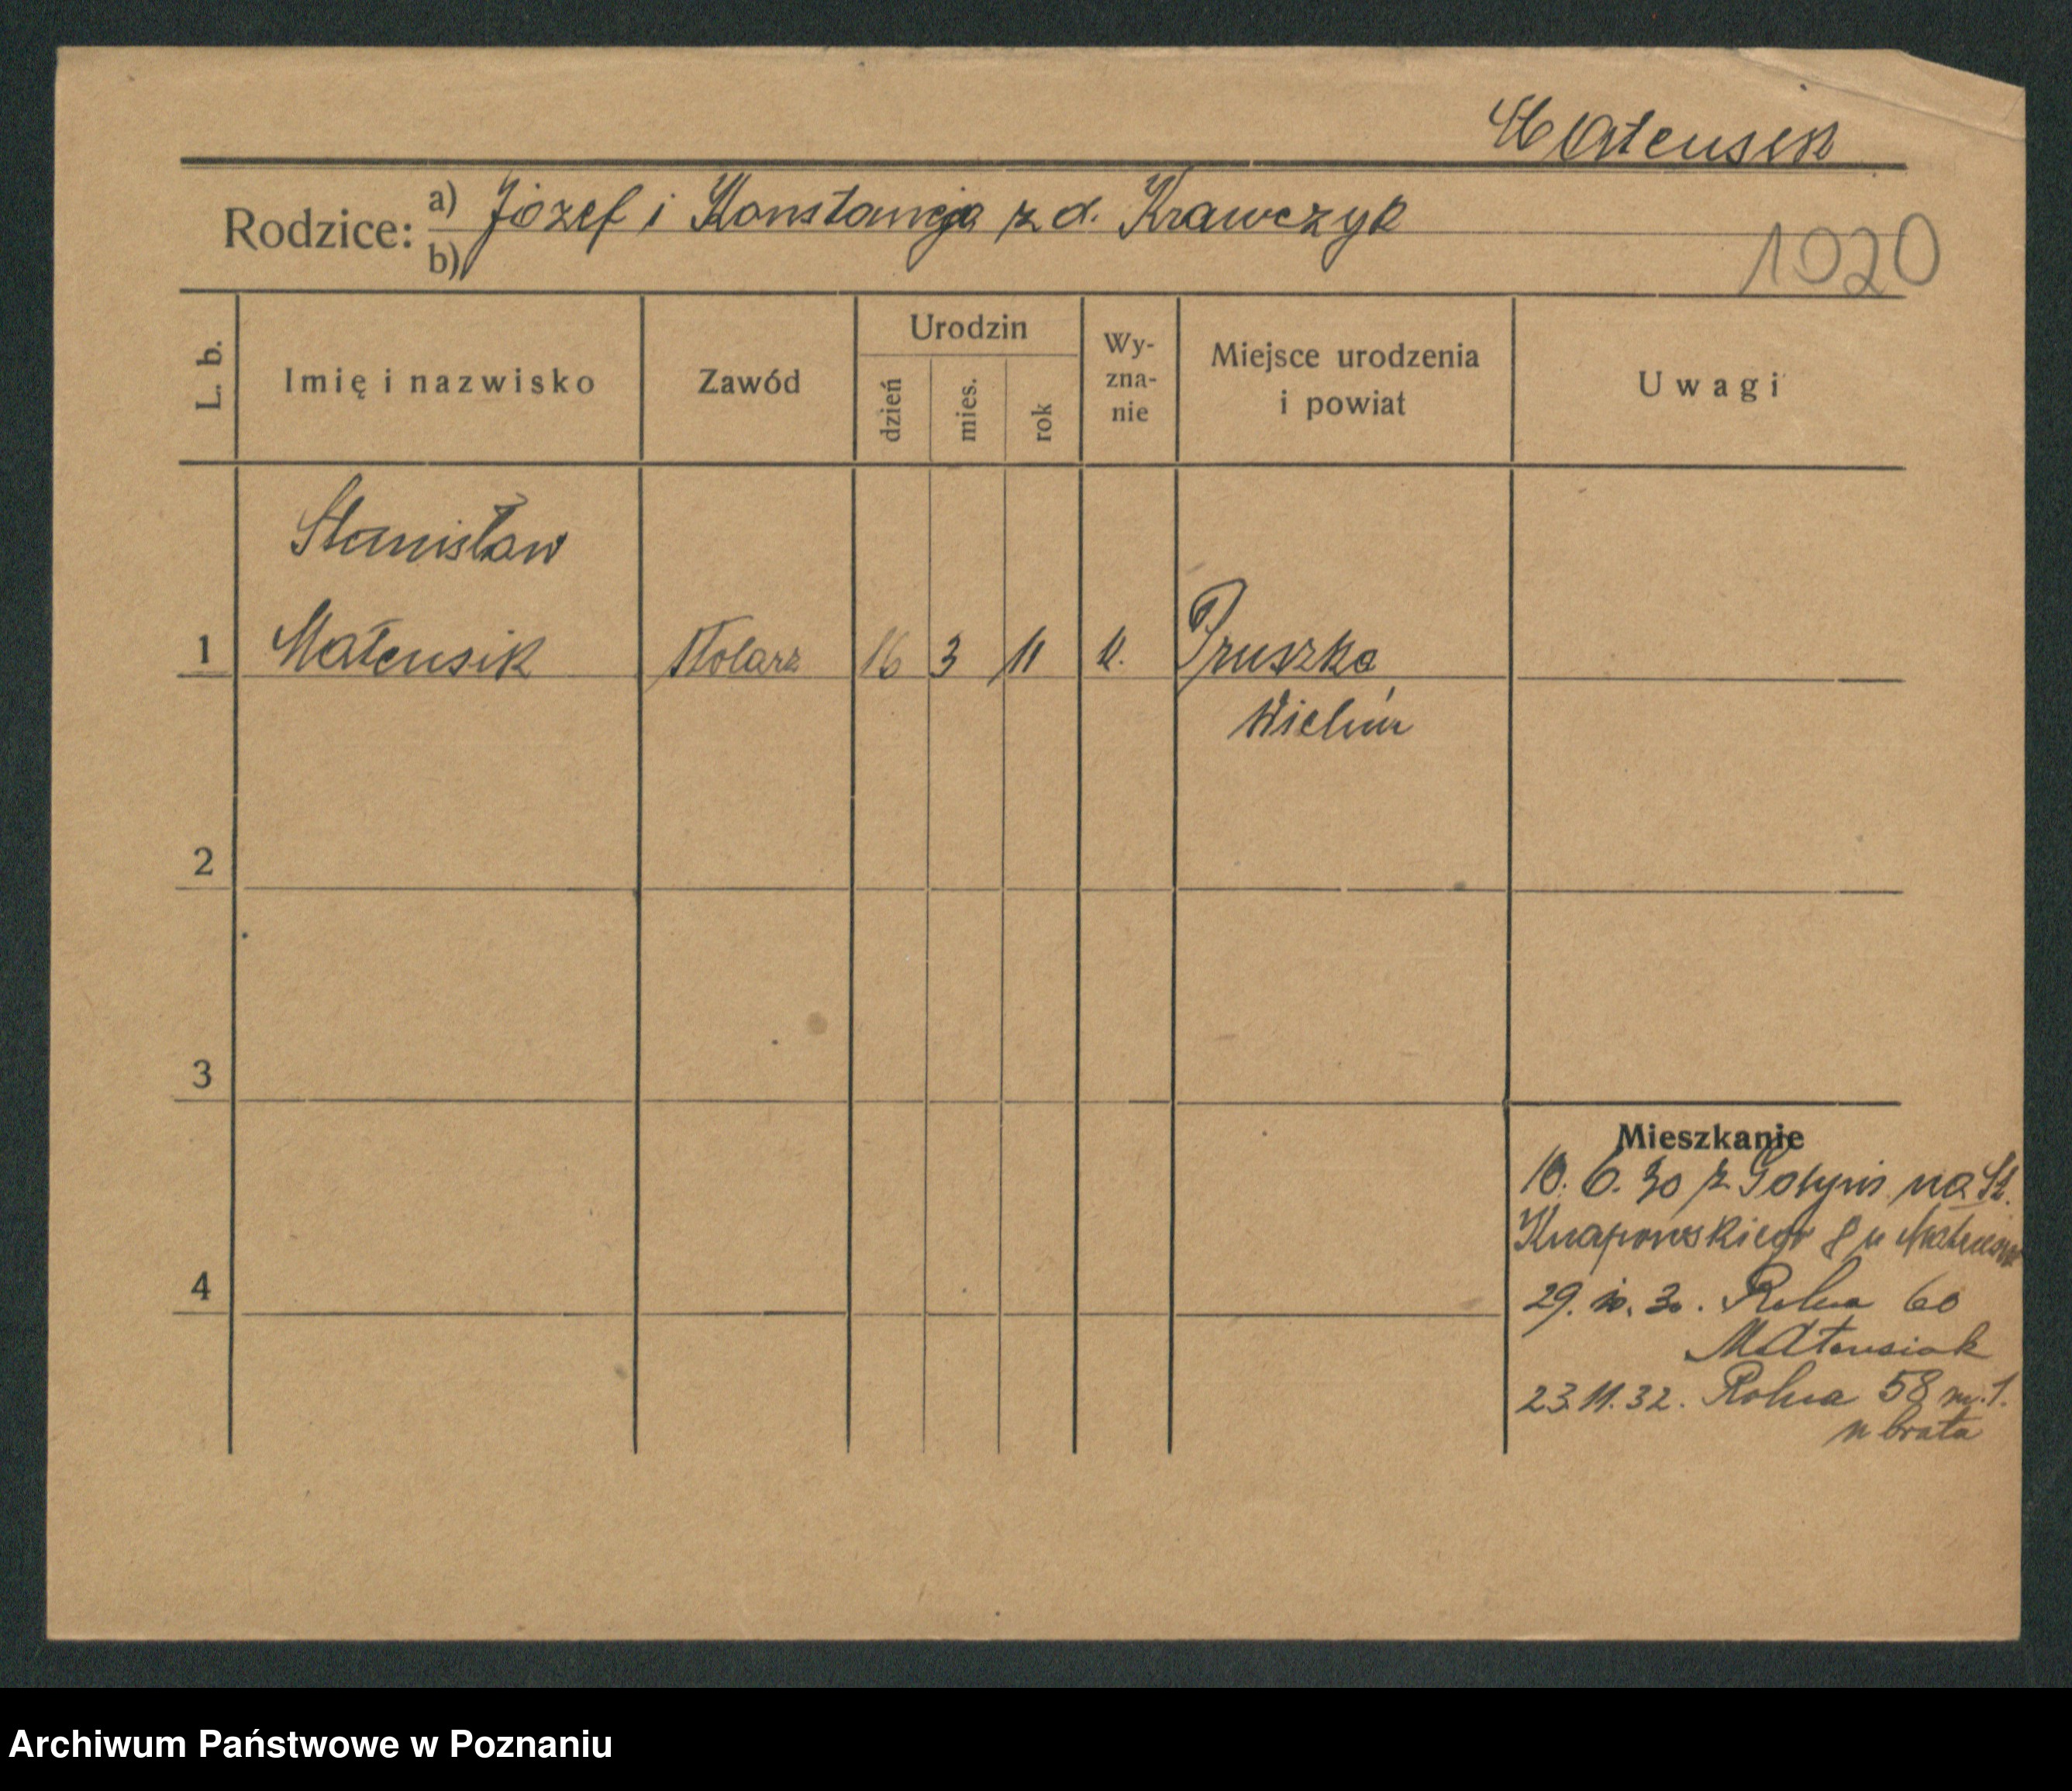 Matensik
Rodzice: a) Józef i Konstancja z d. Krawczyk
b)
1020
L. b.
Imię i nazwisko
Zawód
Urodzin
dzień
mies.
rok
Wy-
zna-
nie
Miejsce urodzenia
i powiat
Uwagi
Stanisław
1 Matensik Stolarz 16 3 11 k. Pruszka
Wieluń
2
3
4
Mieszkanie
10. 6. 30 z na St.
Knapowskiego 8 u
29. 10. 30. Rolna 60
Matensiak
23.11.32. Rolna 58 m. 1.
u brata
Archiwum Państwowe w Poznaniu